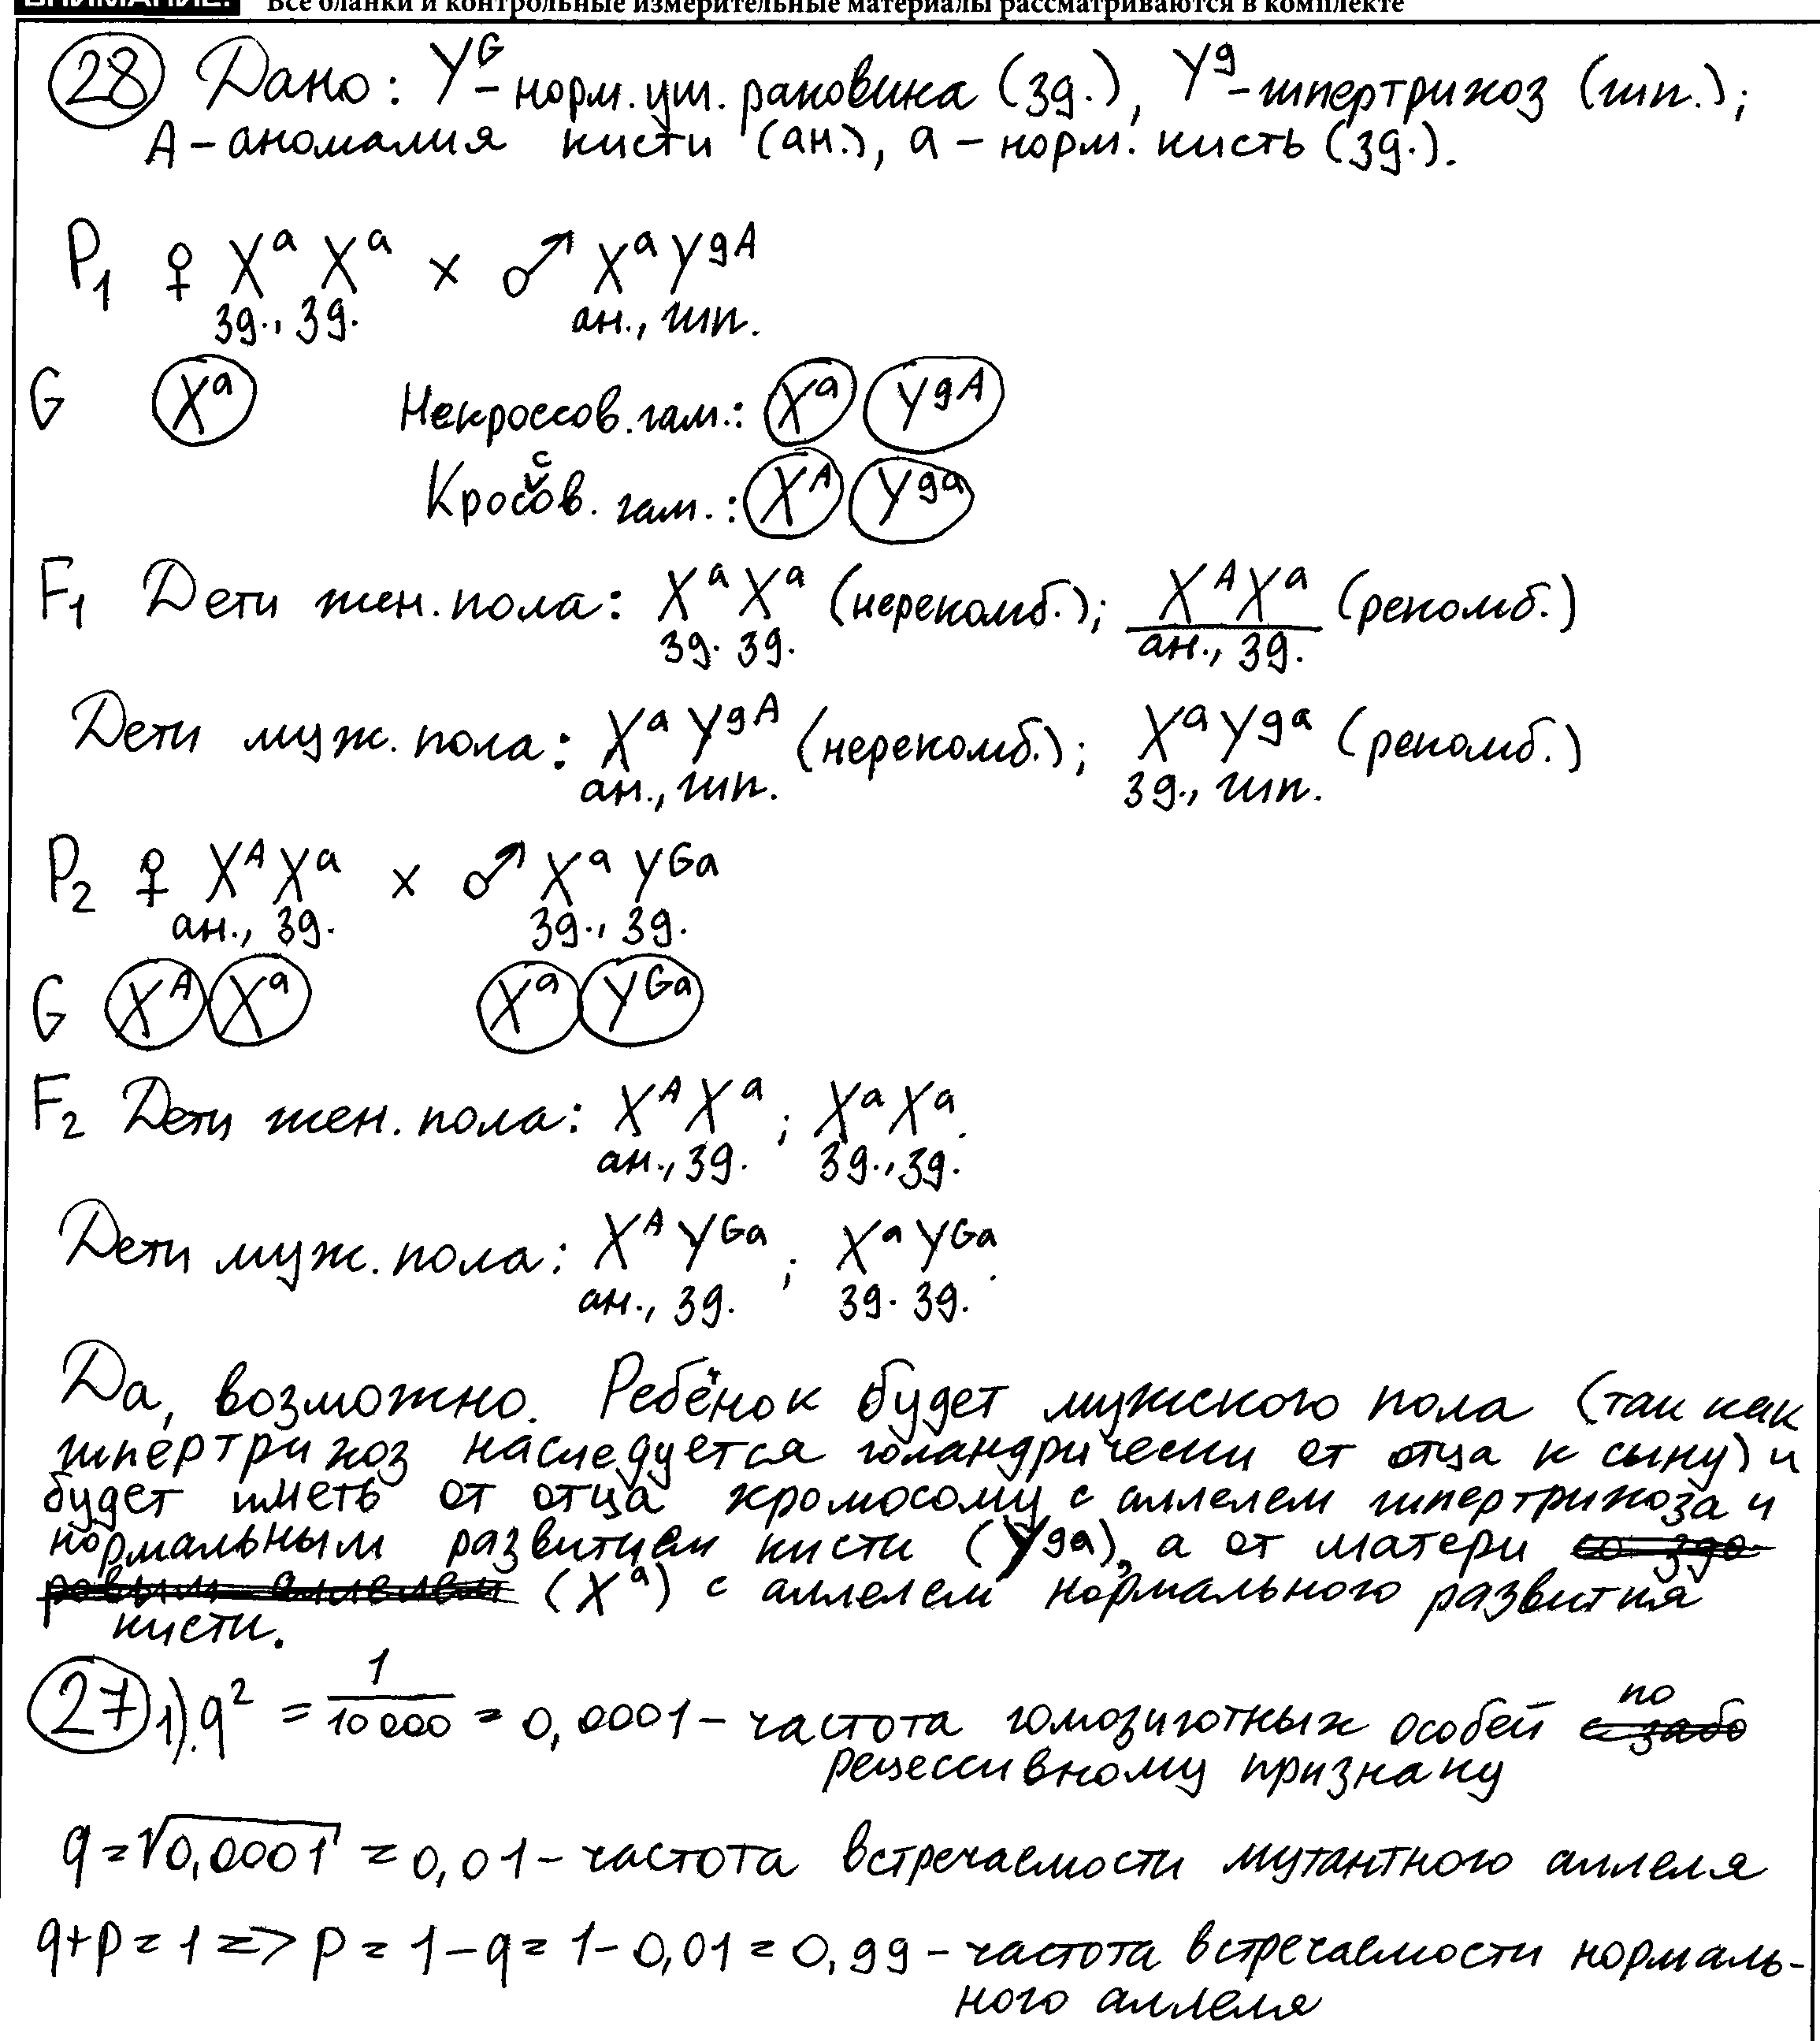 ВНИМАНИЕ! Все бланки и контрольные измерительные материалы рассматриваются в комплекте
28 Дано: Y^G - норм. уш. раковина (зд.), Y^g - гипертрихоз (гип.);
А - аномалия кисти (ан.), а - норм. кисть (зд.).
P₁ ♀ X^a X^a × ♂ X^a Y^gA
зд., зд. ан., гип.
G X^a Некроссов. гам.: X^a Y^gA
Кроссов. гам.: X^A Y^ga
F₁ Дети жен. пола: X^a X^a (нерекомб.); X^A X^a (рекомб.)
зд. зд. ан., зд.
Дети муж. пола: X^a Y^gA (нерекомб.); X^a Y^ga (рекомб.)
ан., гип. зд., гип.
P₂ ♀ X^A X^a × ♂ X^a Y^Ga
ан., зд. зд., зд.
G X^A X^a X^a Y^Ga
F₂ Дети жен. пола: X^A X^a ; X^a X^a.
ан., зд. зд., зд.
Дети муж. пола: X^A Y^Ga ; X^a Y^Ga.
ан., зд. зд. зд.
Да, возможно. Ребёнок будет мужского пола (так как
гипертрихоз наследуется голандрически от отца к сыну) и
будет иметь от отца хромосому с аллелем гипертрихоза и
нормальным развитием кисти (Y^ga), а от матери со здо-
ровым аллелем (X^a) с аллелем нормального развития
кисти.
27 1). q² = 1/10000 = 0,0001 - частота гомозиготных особей с забо по
рецессивному признаку
q = √0,0001 = 0,01 - частота встречаемости мутантного аллеля
q+p = 1 => p = 1 - q = 1 - 0,01 = 0,99 - частота встречаемости нормаль-
ного аллеля